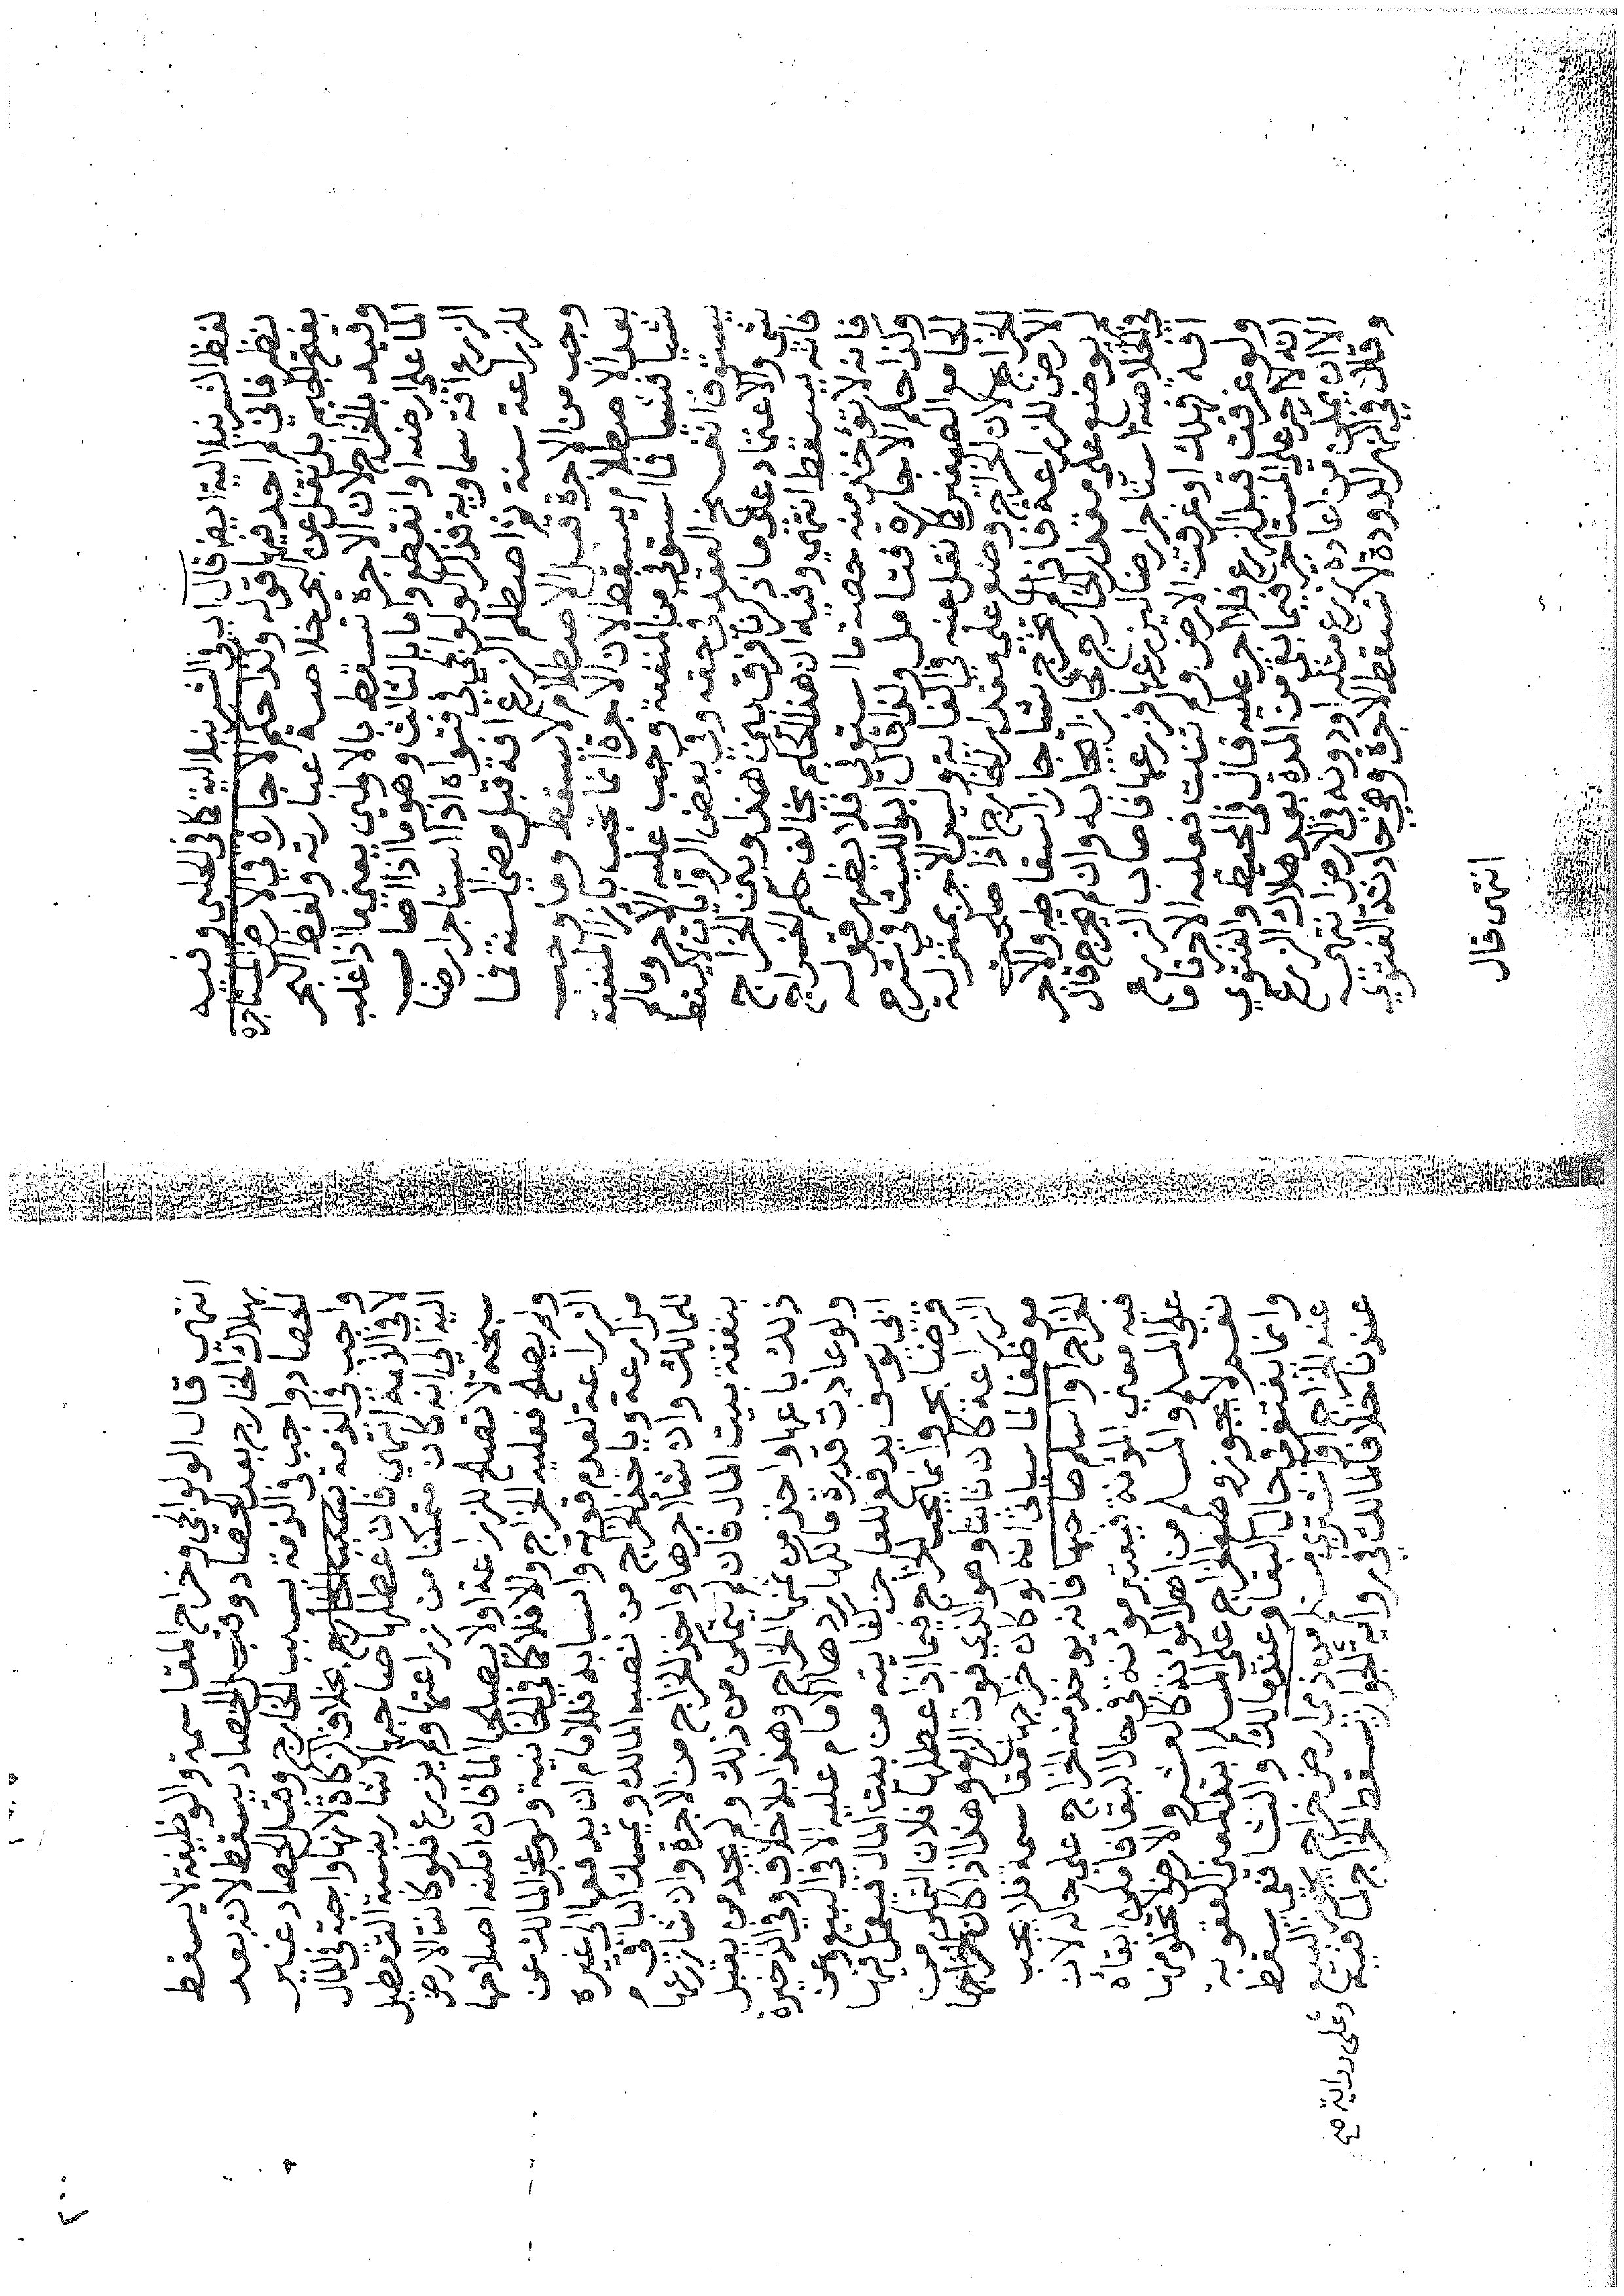 لفظ الشرنبلالية ايضا قال اي في الشرنبلالية كما في الحلبي وفيه
نظر فاني لم احد فيها قوله وكذا حكم الاجارة في الارض المستاجرة
بفتح الجيم بل نقل عن البحر خلاصة عبارته ولفظ البحر
وقيد بالخراج لان الاجرة تسقط بالاولين يعني ما اذا غلب
الماء على ارضه او انقطع واما بالثالث وهو ما اذا اصاب
الزرع آفة سماوية فذكر الولوالجي في فتواه اذا استاجر ارضا
للزراعة سنة ثم اصطلم الزرع آفة قبل مضي السنة فما
وجب من الاجرة قبل الاصطلام لا يسقط وما وجب
بعد الاصطلام يسقط لان الاجرة انما تجب بازاء المنفعة
شيئا فشيئا فما استوفى من المنفعة وجب عليه الاجر وما لم
يستوف انفسخ العقد في حقه وفي بعض الروايات لا يسقط
شي والاعتماد على ما ذكرنا فرق بين هذا وبين الخراج
فانه يسقط انتهى وفيه ان هذا الحكم يخالف حكم الخراج
فانه لا يؤخذ منه حصة ما استوفى فلا يظهر قوله
وكذا حكم الاجارة فتامل ولذا قال ابو الليث في شرح
الجامع الصغير كما نقل عنه في الكفاية ليس الاجر بمنزلة
الخراج لان الخراج وضع على مقدار الخارج اذا صلحت
الارض للزراعة فاذا لم يخرج شيئا جاز اسقاطه والاجر
لم يوضع على مقدار الخارج فجاز ايجابه وان لم يخرج قال
في الخلاصة استاجر ارضا ليزرعها فزرعها فاصاب الزرع
آفة فهلك او غرقت الارض ولم تنبت فعليه الاجر تاما
ولو غرقت قبل الزرع فلا اجر عليه قال في المحيط والفتوى
انه لا اجر على المستاجر فيما بقي من المدة بعد هلاك الزرع
الا ان يتمكن من اعادة زرع مثله او دونه في الارض انتهى
وقال في النهر الدودة لا تسقط الاجرة وهي حادثة الفتوى
انتهى قال
انتهى قال الولوالجي وخراج المقاسمة والوظيفة لا يسقط
بهلاك الخارج بعد الحصاد وقبل الحصاد يسقط لانه بعد
الحصاد واجب في الذمة بسبب الخارج وقبل الحصاد غير
واجب في الذمة بسبب الخارج بخلاف الزكاة لانها واجبة في المال
لا في الذمة انتهى فان عطلها صاحبها اشار بنسبة التعطيل
اليه الى انه كان متمكنا من زراعتها ولم يزرع فلو كانت الارض
سبخة لا تصلح للزراعة او لا يصلها الماء فان امكنه اصلاحها
ولم يصلح فعليه الخراج والا فلا كما في الخانية ولو عجز المالك عن
الزراعة لعدم قوته واسبابه فللامام ان يدفعها الى غيره
مزارعة وياخذ الخراج من نصيب المالك ويمسك الباقي
للمالك وان شاء آجرها واخذ الخراج من الاجرة وان شاء زرعها
بنفقة بيت المال فان لم يتمكن من ذلك ولم يجد من يقبل
ذلك باعها واخذ من ثمنها الخراج وهذا بلا خلاف وفي الذخيرة
ولو عادت قدرة مالكها ردها الامام عليه الا في البيع وعن
ابي يوسف يدفع للعاجز كفايته من بيت المال فيعمل فيها
قرضا بحر وانما يجب الخراج فيما اذا عطلها فلان التمكن من
الزراعة كان ثابتا وهو الذي فوت الريع وهذا اذا كان خراجها
موظفا لما سياتي انه لو كان خراجها مقاسمة فلا يجب
الخراج او اسلم صاحبها فانه يؤخذ منه الخراج على حاله لان
فيه معنى المؤنة فيعتبر مؤنة في حال البقاء فامكن ابقاؤه
على المسلم والمسلم من اهل المؤنة كالعشر والارض لا تخلو منها
نعم لا يجوز وضع الخراج على المسلم ابتداء لمعنى العقوبة
وانما بقي في حال البقاء وعند مالك والشافعي يسقط
عنه الخراج او اشترى مسلم من ذمي ارض خراج يجوز البيع
وعلى رواية صح
عندنا خلافا لمالك في رواية الجواز يسقط الخراج لما فيه